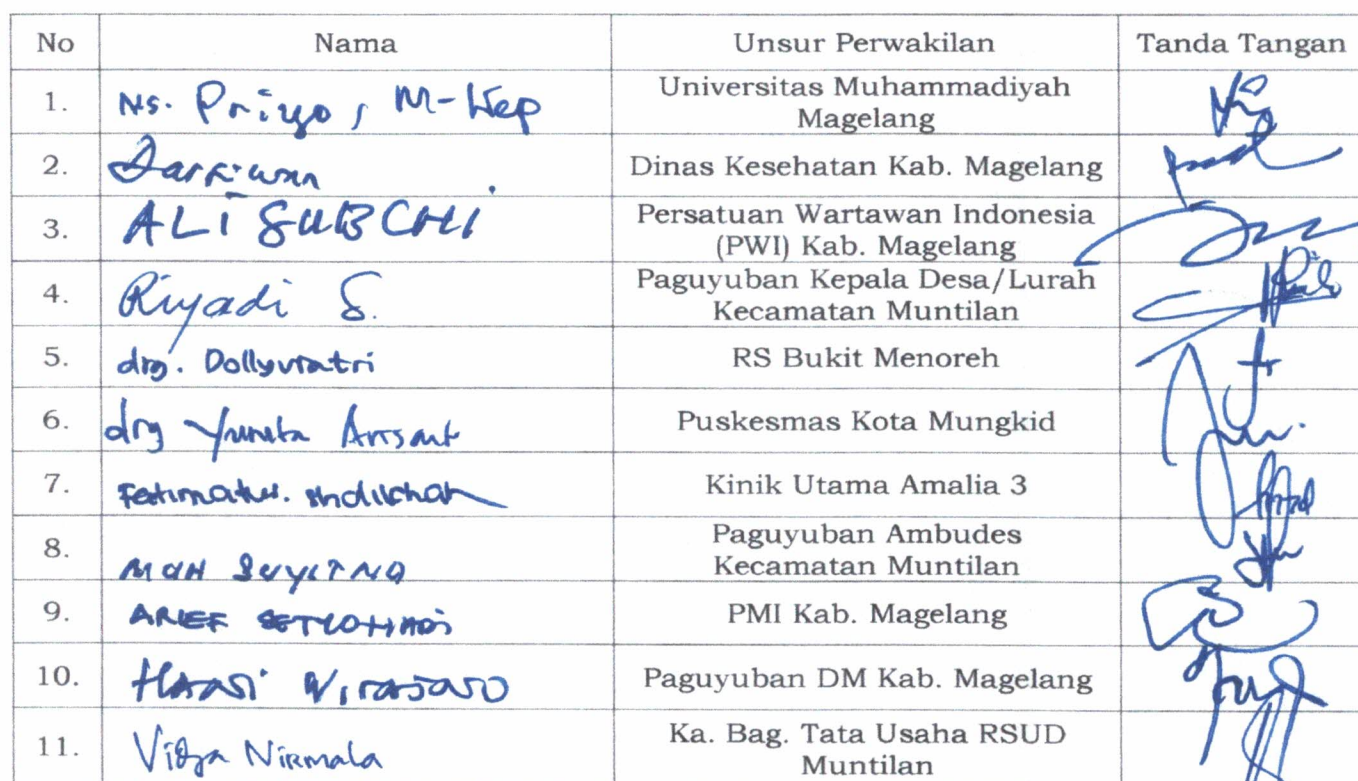 No Nama Unsur Perwakilan Tanda Tangan
1. Ns. Priyo, M-Kep Universitas Muhammadiyah
Magelang
2. Darkiwan Dinas Kesehatan Kab. Magelang
3. ALI SUBCHI Persatuan Wartawan Indonesia
(PWI) Kab. Magelang
4. Riyadi S. Paguyuban Kepala Desa/Lurah
Kecamatan Muntilan
5. drg. Dollyvratri RS Bukit Menoreh
6. drg Puskesmas Kota Mungkid
7. Kinik Utama Amalia 3
8. MOH SUYITNO Paguyuban Ambudes
Kecamatan Muntilan
9. ARIEF PMI Kab. Magelang
10. Paguyuban DM Kab. Magelang
11. Vidya Nirmala Ka. Bag. Tata Usaha RSUD
Muntilan